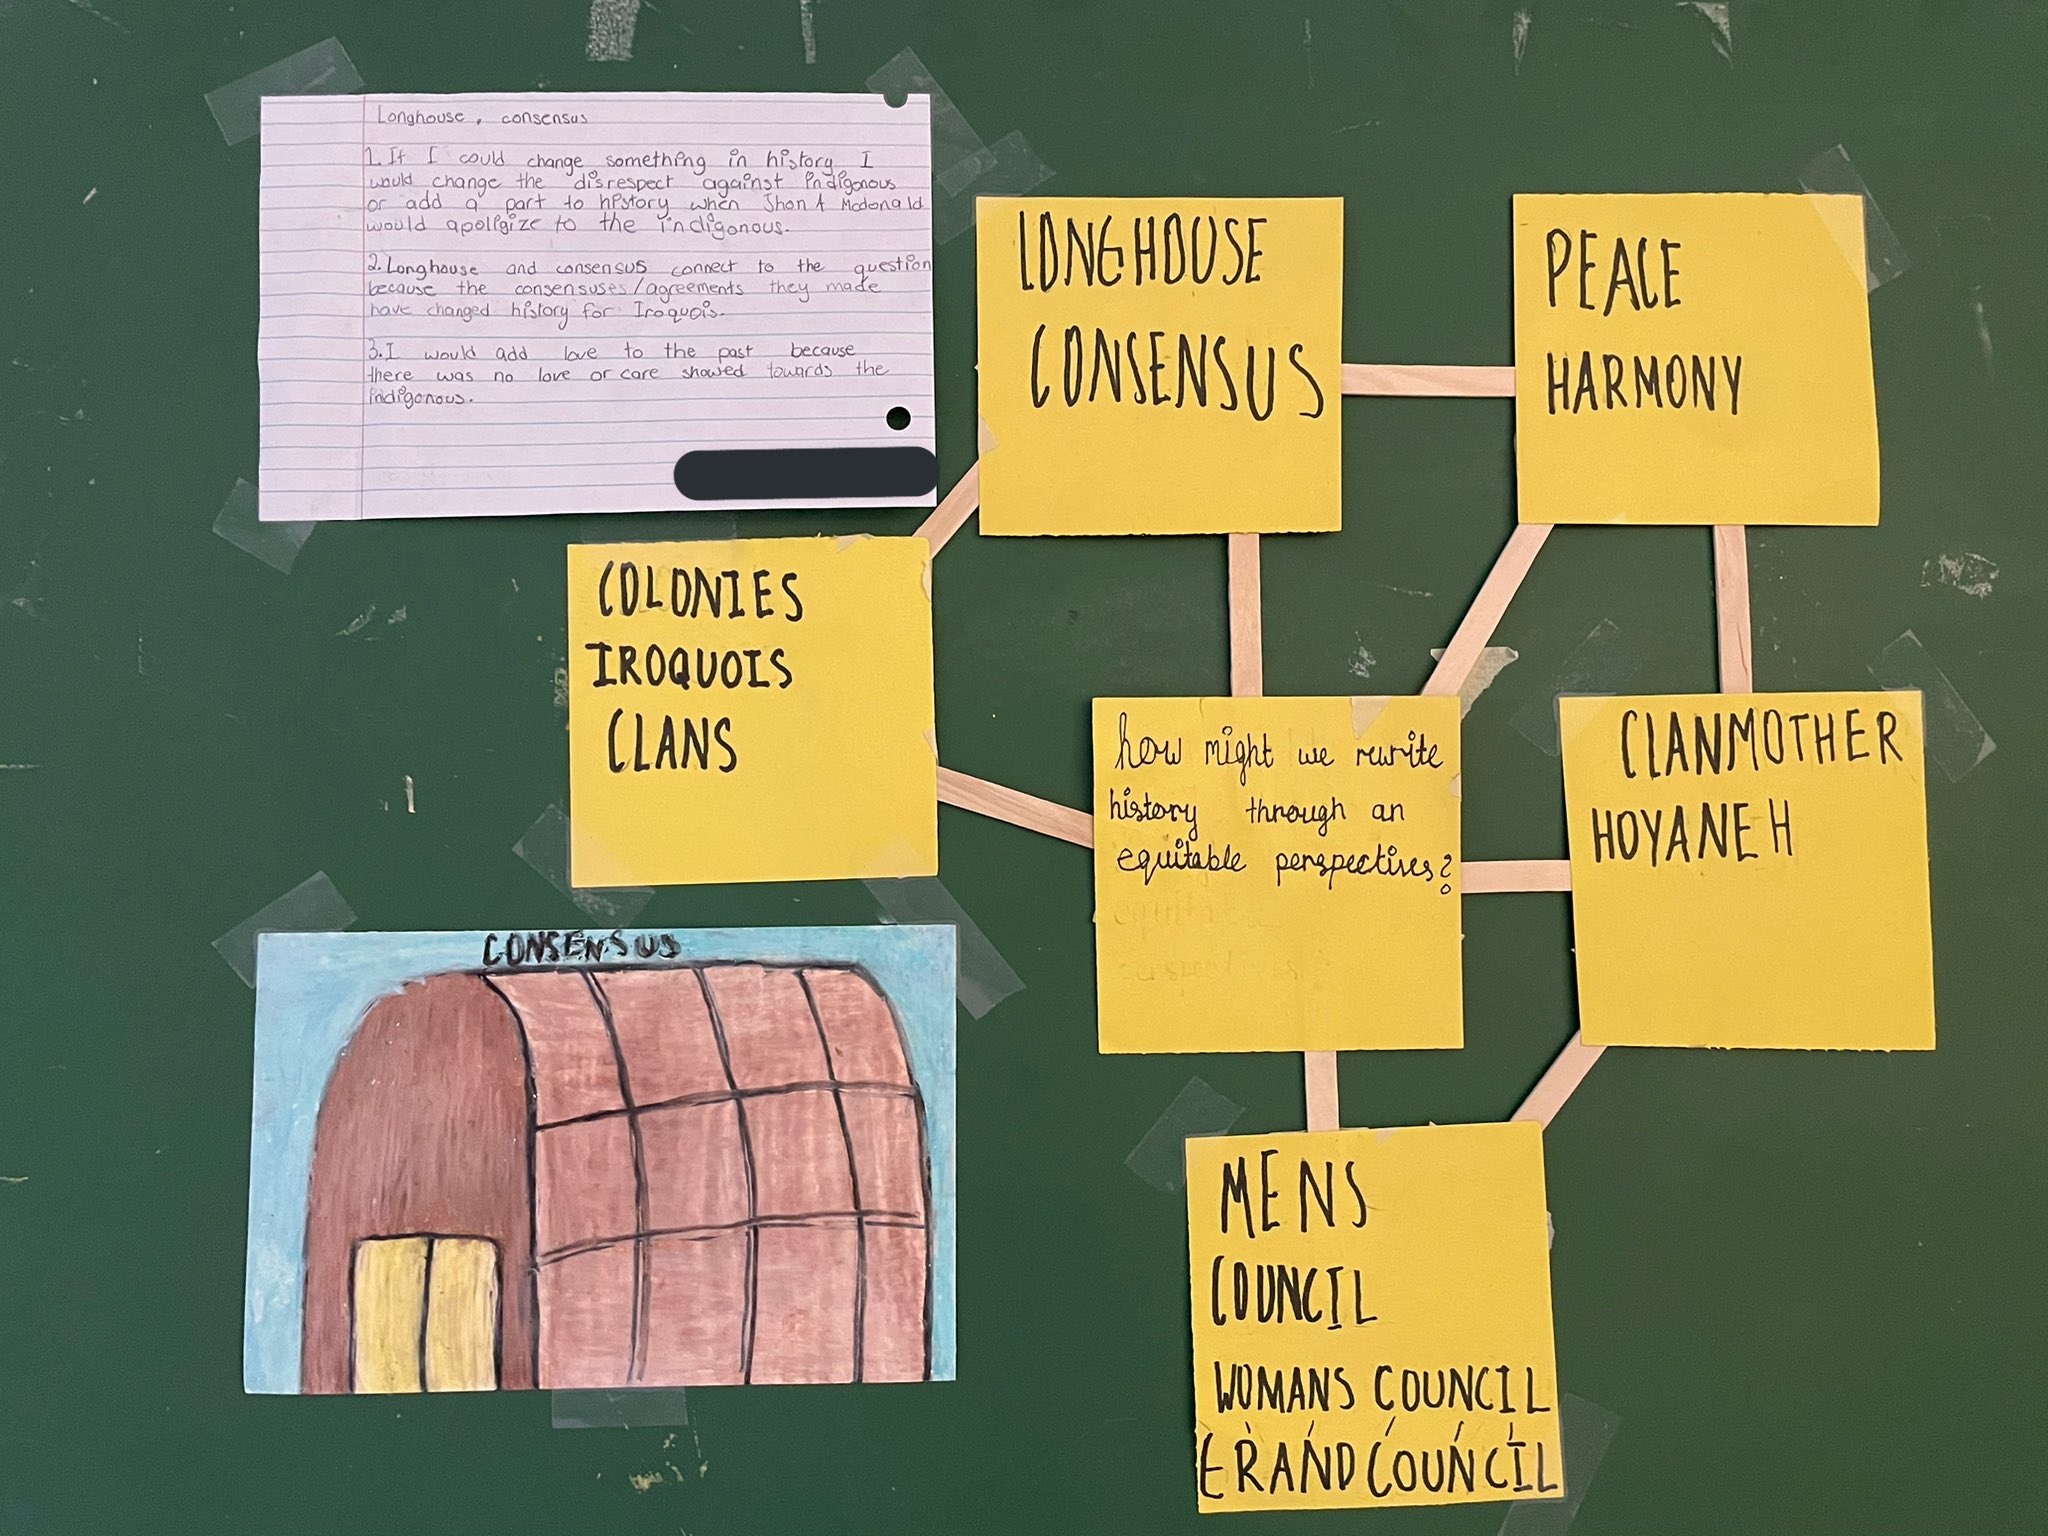 Longhouse, consensus
1. If I could change something in history I
would change the disrespect against indigonous
or add a part to history when Jhon A Mcdonald
would apoligize to the indigonous.
2. Longhouse and consensus connect to the question
because the consensuses/agreements they made
have changed history for Iroquois.
3. I would add love to the past because
there was no love or care showed towards the
indigonous.
LONGHOUSE
CONSENSUS
PEACE
HARMONY
COLONIES
IROQUOIS
CLANS
how might we rewrite
history through an
equitable perspectives?
CLANMOTHER
HOYANEH
CONSENSUS
MENS
COUNCIL
WOMANS COUNCIL
GRAND COUNCIL